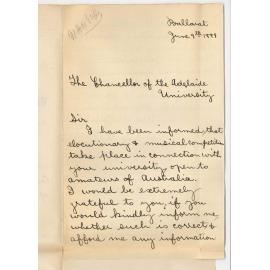 Ballarat
June 9th 1899
The Chancellor of the Adelaide
University
Sir
I have been informed, that
elocutionary & musical competitions
take place in connection with
your university open to
amateurs of Australia.
I would be extremely
grateful to you, if you
would kindly inform me,
whether such is correct &
afford me any information